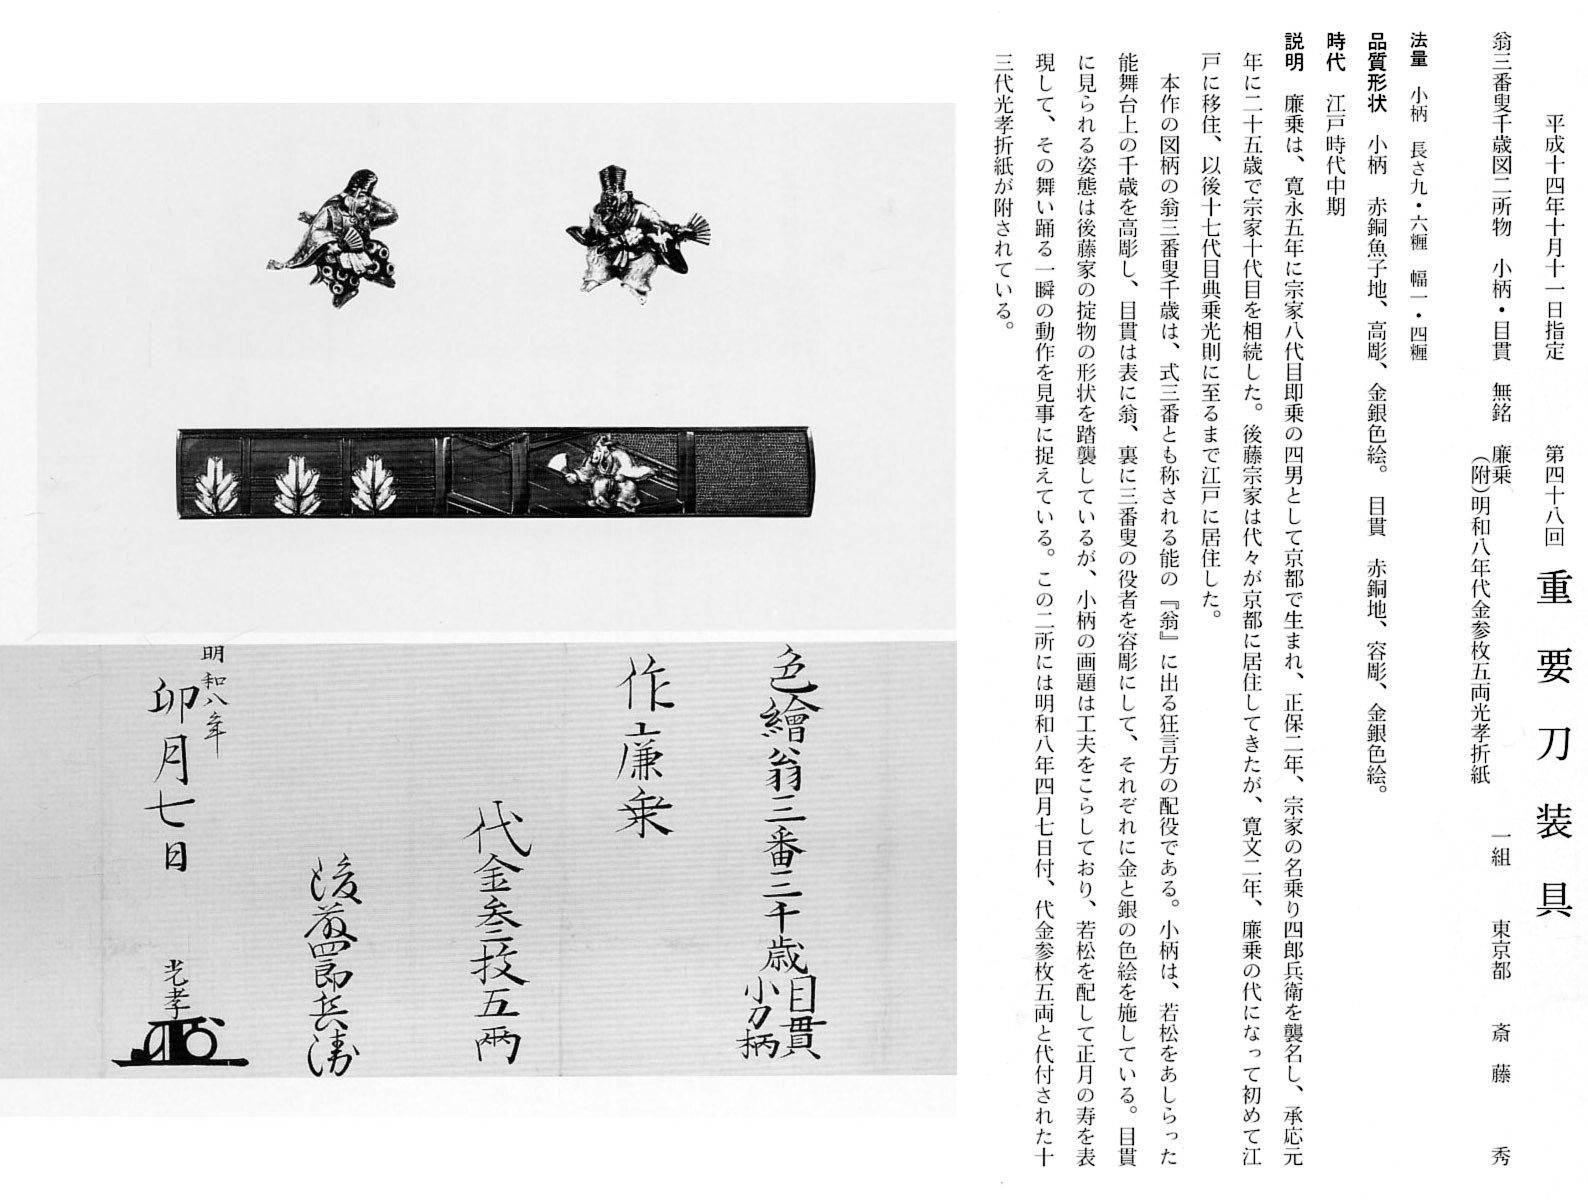 平成十四年十月十一日指定　第四十八回　重要刀装具
翁三番叟千歳図二所物　小柄・目貫　無銘　廉乗　一組　東京都　斎藤　秀
（附）明和八年代金参枚五両光孝折紙
法量　小柄　長さ九・六糎　幅一・四糎
品質形状　小柄　赤銅魚子地、高彫、金銀色絵。　目貫　赤銅地、容彫、金銀色絵。
時代　江戸時代中期
説明　廉乗は、寛永五年に宗家八代目即乗の四男として京都で生まれ、正保二年、宗家の名乗り四郎兵衛を襲名し、承応元
年に二十五歳で宗家十代目を相続した。後藤宗家は代々が京都に居住してきたが、寛文二年、廉乗の代になって初めて江
戸に移住、以後十七代目典乗光則に至るまで江戸に居住した。
本作の図柄の翁三番叟千歳は、式三番とも称される能の『翁』に出る狂言方の配役である。小柄は、若松をあしらった
能舞台上の千歳を高彫し、目貫は表に翁、裏に三番叟の役者を容彫にして、それぞれに金と銀の色絵を施している。目貫
に見られる姿態は後藤家の掟物の形状を踏襲しているが、小柄の画題は工夫をこらしており、若松を配して正月の寿を表
現して、その舞い踊る一瞬の動作を見事に捉えている。この二所には明和八年四月七日付、代金参枚五両と代付された十
三代光孝折紙が附されている。
色繪翁三番三千歳目貫小刀柄
作廉乗
代金参枚五両
後藤四郎兵衛
明和八年
卯月七日
光孝